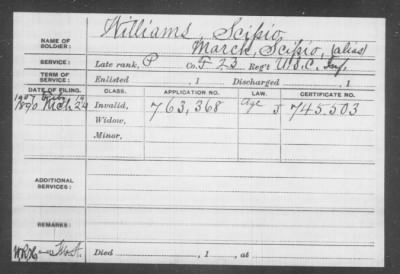 NAME OF SOLDIER: Williams, Scipio,
March, Scipio, (alias)
SERVICE: Late rank, P Co. F 23 Reg't U.S.C. Inf.
TERM OF SERVICE: Enlisted , 1 Discharged , 1
DATE OF FILING. CLASS. APPLICATION NO. LAW. CERTIFICATE NO.
1890 Mch Invalid, 763,368 Age J 745.503
Widow,
Minor,
ADDITIONAL SERVICES:
REMARKS:
Died , 1 , at